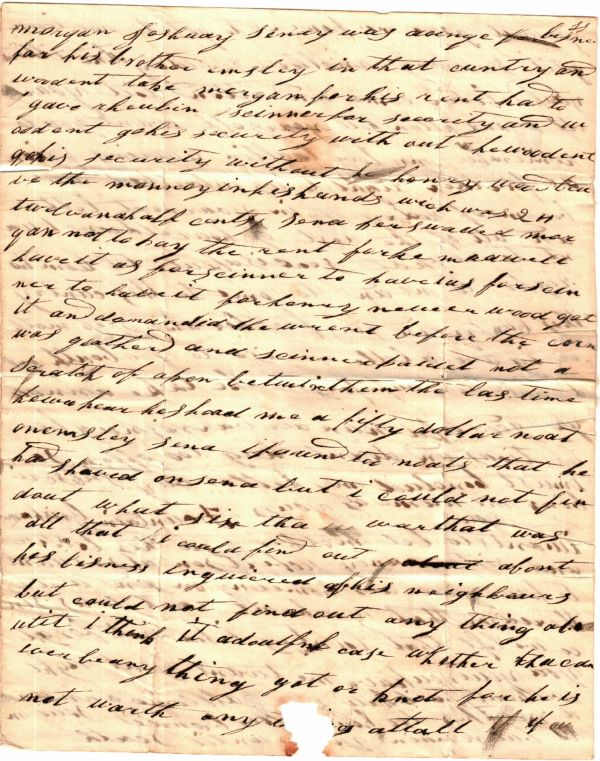 morgan Joshuay seney was doinge bisne
for his brother emsley in that cuntry and
woodent take morgan for his rent had to
gave rheubin scinner for security and w
oodent go his security with out he woodent
go his security without henery wood lea
ve the monney in his hands wich was 24
twelve and half cents sena perswaded mor
gan not to pay the rent for he mad well
have it as for scinner to have it as for scin
ner to have it for henry never wood get
it and demandid the wrent before the corn
was gatherd and scinner paid it not a
scratch of apen betwixt them the las time
he was hear he shoad me a fifty dollar noat
on emsley sena i found too noats that he
had shaved on sena but i could not fin
dout what tha war that was
all that i could find out about
his bisness inquiered of his neighbours
but could not find out any thing abo
utit i think it a doutful case whether tha can
ever be any thing got or knot for he is
not worth any thing attall if you